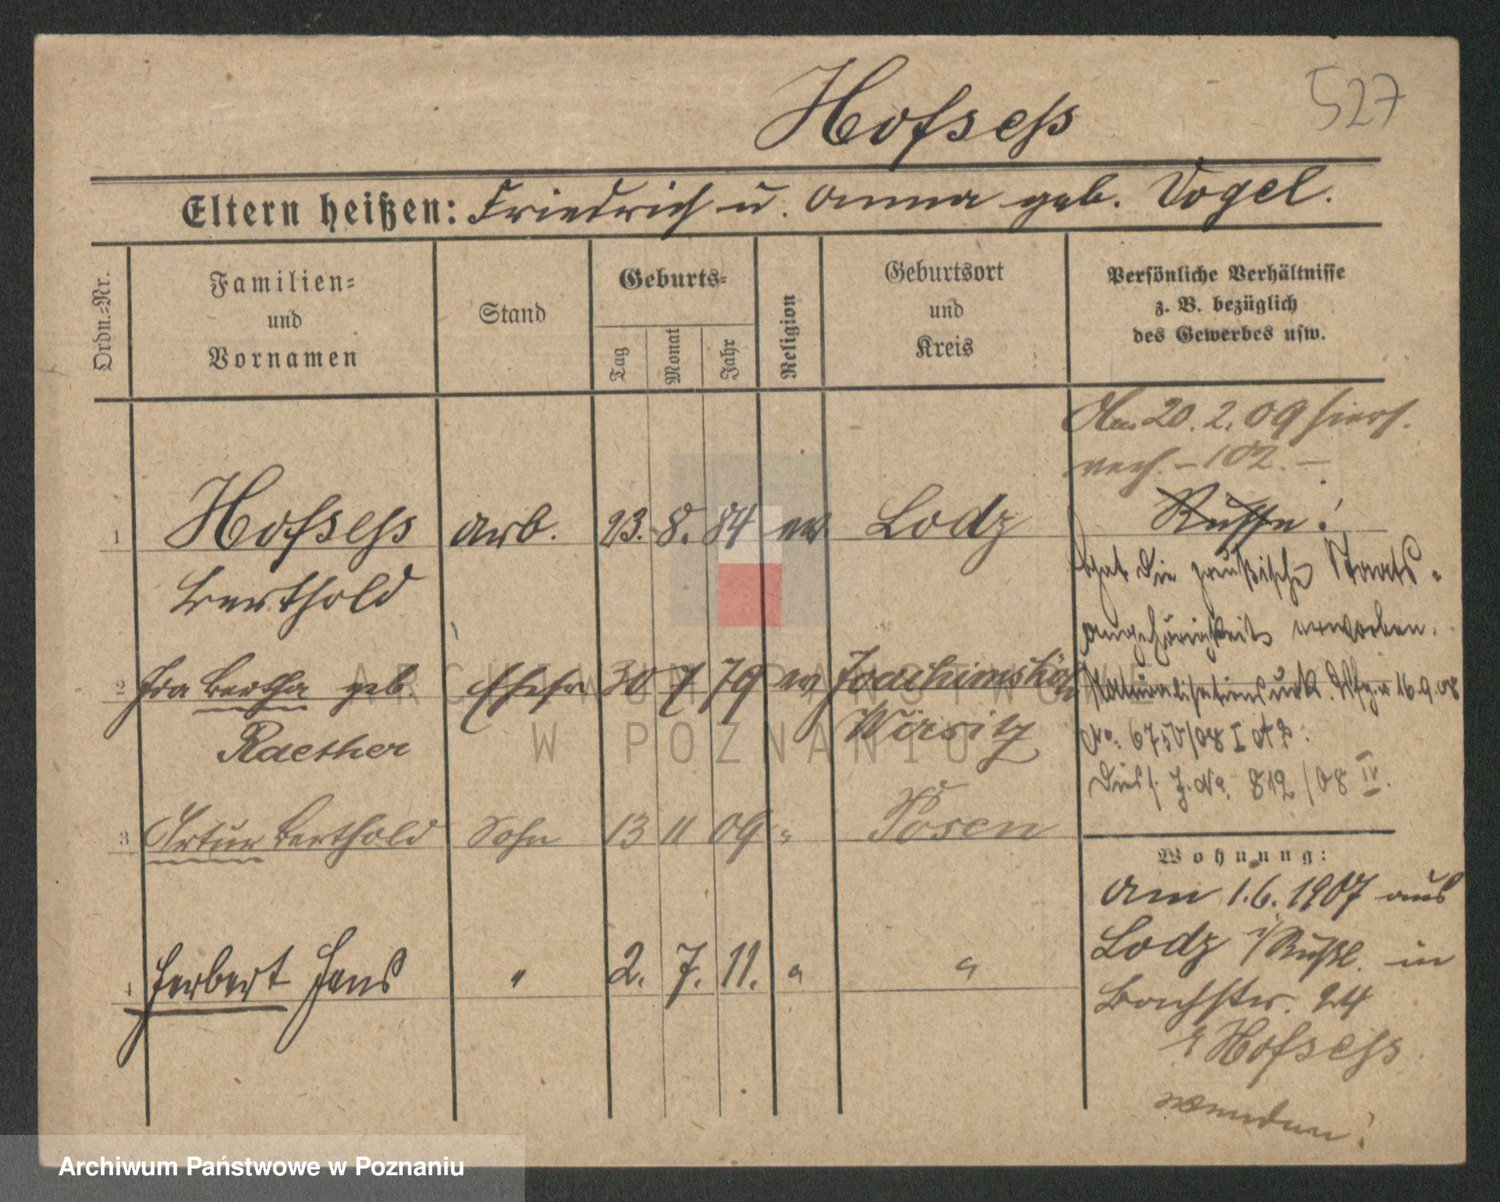 Hofsess 527
Eltern heißen: Friedrich u. Anna geb. Vogel.
Ordn.-Nr.
Familien- und Vornamen
Stand
Geburts-
Tag Monat Jahr
Religion
Geburtsort und Kreis
Persönliche Verhältnisse z. B. bezüglich des Gewerbes usw.
Am 20. 2. 09 hiers.
- 102. -
1 Hofsess Arb. 23. 8. 84 ev Lodz
Berthold
Russe!
hat die preußische Staats-
angehörigkeit erworben.
2 Fra Bertha geb Ehefr 30 7 79 ev
Raether Wirsitz
Naturalisationsurk. 16.9.08
No. 6750/08 I
J. No. 812/08 IV.
3 Artur Berthold Sohn 13 11 09 " Posen
4 Herbert Hans " 2. 7. 11. " "
Wohnung:
Am 1.6.1907 aus
Lodz i/Rußl. in
Bachstr. 24
Hofsess
wenden!
ARCHIWUM PAŃSTWOWE
W POZNANIU
Archiwum Państwowe w Poznaniu